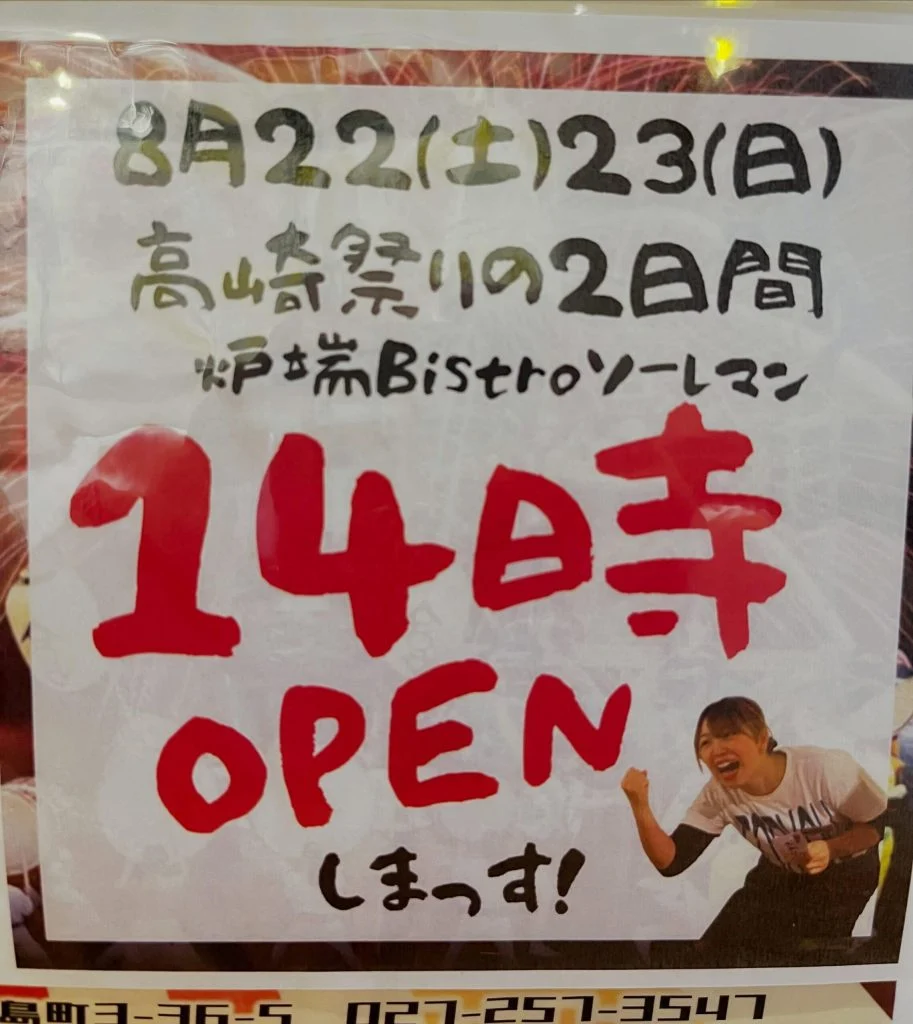 8月22(土)23(日)
高崎祭りの2日間
炉端Bistroソーレマン
14時
OPEN
しまっす!
島町3-36-5 027-257-3547